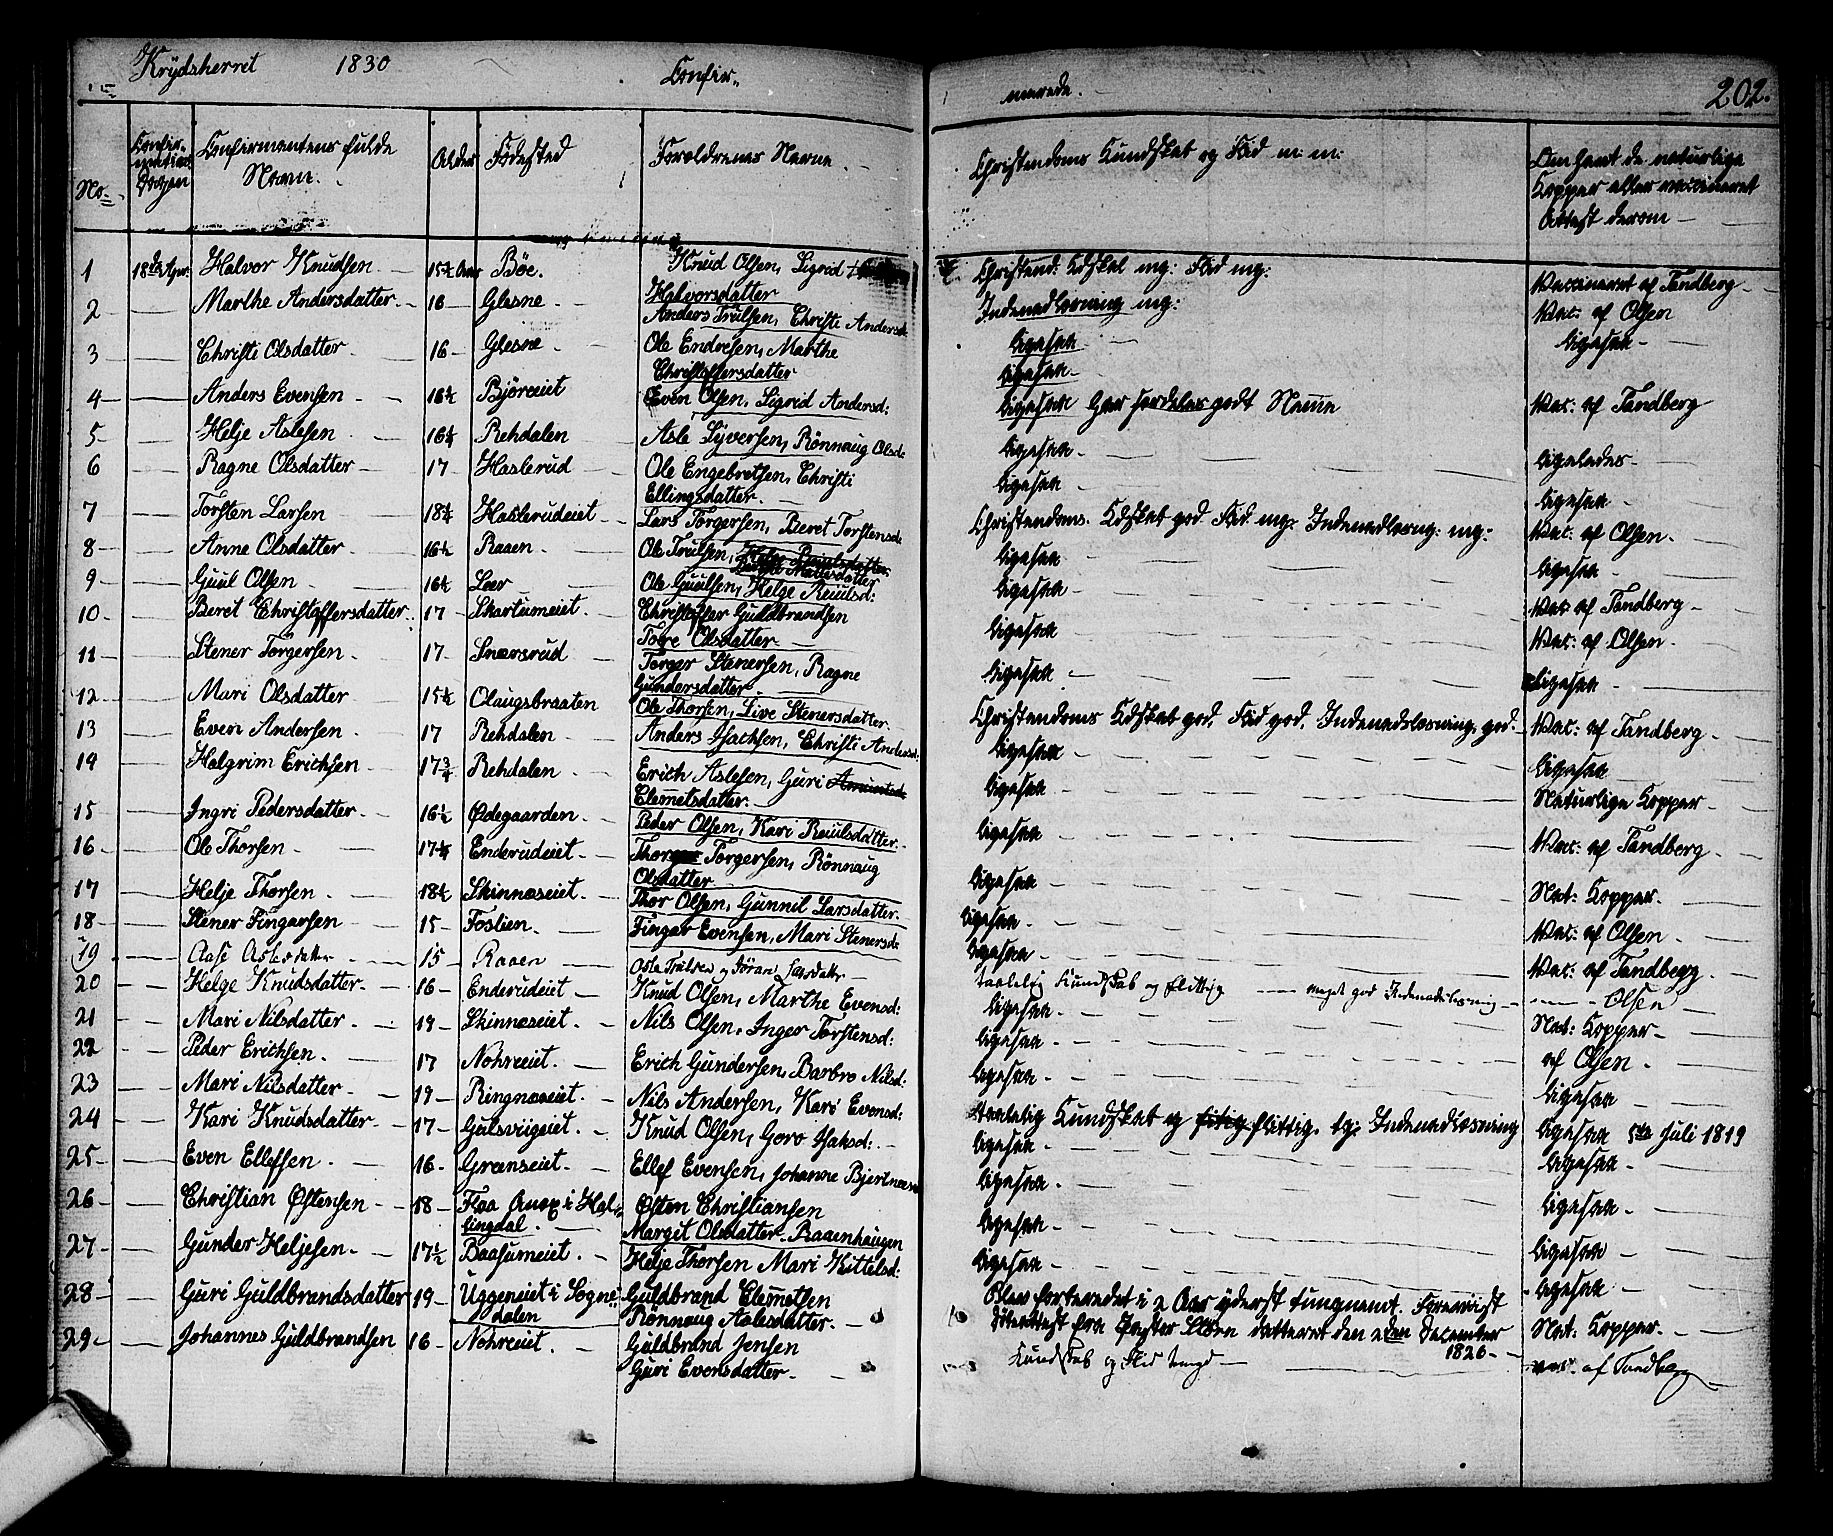 Krydsherret 1830 Confir-
merede. 202.
No. Confirmations Dagen Confirmentens fulde Navn. Alder Fødested Forældrenes Navne Christendoms Kundskab og Flid m: m: Om havt de naturlige Kopper eller vaccineret Attest derom
1 18de Apr. Halvor Knudsen 15¾ Aar Bøe. Knud Olsen, Sigrid Halvorsdatter Christend: Kdskab mg: Flid mg: Indenadlæsning mg: Vaccineret af Tandberg
2 Marthe Andersdatter 16 Glesne Anders Trulsen, Christi Andersd: Ligesaa Vac: af Olsen
3 Christi Olsdatter 16 Glesne Ole Endresen, Marthe Christoffersdatter Ligesaa Ligesaa
4 Anders Evensen 16¼ Bjøreeiet Even Olsen, Sigrid Andersd: Ligesaa Vac: af Tandberg
5 Helje Aslesen 16¼ Rehdalen Asle Syversen, Rönnaug Olsd: Ligesaa Ligeledes
6 Ragne Olsdatter 17 Haslerud Ole Engebretsen, Christi Ellingsdatter Ligesaa Ligesaa
7 Torsten Larsen 18¾ Hasleru­deiet Lars Torgersen, Beret Torstensd: Christendoms Kdskab god Flid mg: Indenadlæsng: mg: Vac: af Olsen
8 Anne Olsdatter 16½ Raaen Ole Trulsen, Ligesaa Ligesaa
9 Guul Olsen 16¼ Leer Ole Guulsen, Helge Reiulsd: Ligesaa Vac af Tandberg
10 Beret Christoffersdatter 17 Skartumeiet Christoffer Guldbrandsen Tore Olsdatter Ligesaa Vac: af Olsen
11 Stener Torgersen 17 Snærsrud Torger Stenersen, Ragne Gundersdatter Ligesaa Ligesaa
12 Mari Olsdatter 15¾ Olaugsbraaten Ole Thorsen, Live Stenersdatter Christendoms Kdskab god, Flid god, Indenadslæsning god. Vac: af Tandberg
13 Even Andersen 17 Rehdalen Anders Isachsen, Christi Andersd: Ligesaa Ligesaa
14 Halgrim Erichsen 17¾ Rehdalen Erich Aslesen, Guri Clemetsdatter Ligesaa Naturlige Kopper
15 Ingri Pedersdatter 16½ Ødegaarden Peder Olsen, Kari Reiulsdatter Ligesaa Vac: af Tandberg
16 Ole Thorsen 17¼ Enderudeiet Thor Torgersen, Rönnaug Olsdatter Ligesaa Nat: Kopper
17 Helje Thorsen 18½ Skinnæseiet Thor Olsen, Gunnil Larsdatter Ligesaa Vac: af Olsen
18 Stener Fingarsen 15 Foslien Fingar Evensen, Mari Stenersd: Ligesaa Vac: af Tandberg
19 Aase Aslesdatter 15 Raaen Asle Trulsen og Jöran Larsdatter taalelig Kundskab og flittig meget god Indenadslæsning Olsen
20 Helge Knudsdatter 16 Enderudeiet Knud Olsen, Marthe Evensd: Ligesaa Nat: Kopper
21 Mari Nilsdatter 19 Skinnæseiet Nils Olsen, Inger Torstensd: Ligesaa af Olsen
22 Peder Erichsen 17 Nohreeiet Erich Gundersen, Barbro Nilsd: Ligesaa Ligesaa
23 Mari Nilsdatter 19 Ringnæseiet Nils Andersen, Kari Evensd: Taalelig Kundskab og flittig. tg: Indenadlæsning Ligesaa 5te Juli 1819
24 Kari Knudsdatter 17 Gulsviigeiet Knud Olsen, Goro Isaksd: Ligesaa Ligesaa
25 Even Ellefsen 16 Grænseiet Ellef Evensen, Johanne Bjertnæs Ligesaa Ligesaa
26 Christian Østensen 18 Flaa Anex i Hallingdal Østen Christiansen Margit Olsdatter Raaenhaugen Ligesaa Ligesaa
27 Gunder Heljesen 17½ Baasumeiet Helje Thorsen Mari Kittelsd: Ligesaa Ligesaa
28 Guri Guldbrandsdatter 19 Uggeneiet i Sognedalen Guldbrand Clemetsen Rönnaug Aslesdatter Blev forberedet i 2 Aar yderst tungnemt. Foreviist Attest fra Præster dateret den 2den December 1826 Nat: Kopper
29 Johannes Guldbrandsen 16 Nohreeiet Guldbrand Jensen Guri Evensdatter Kundskab og Flid vac. af Tandberg